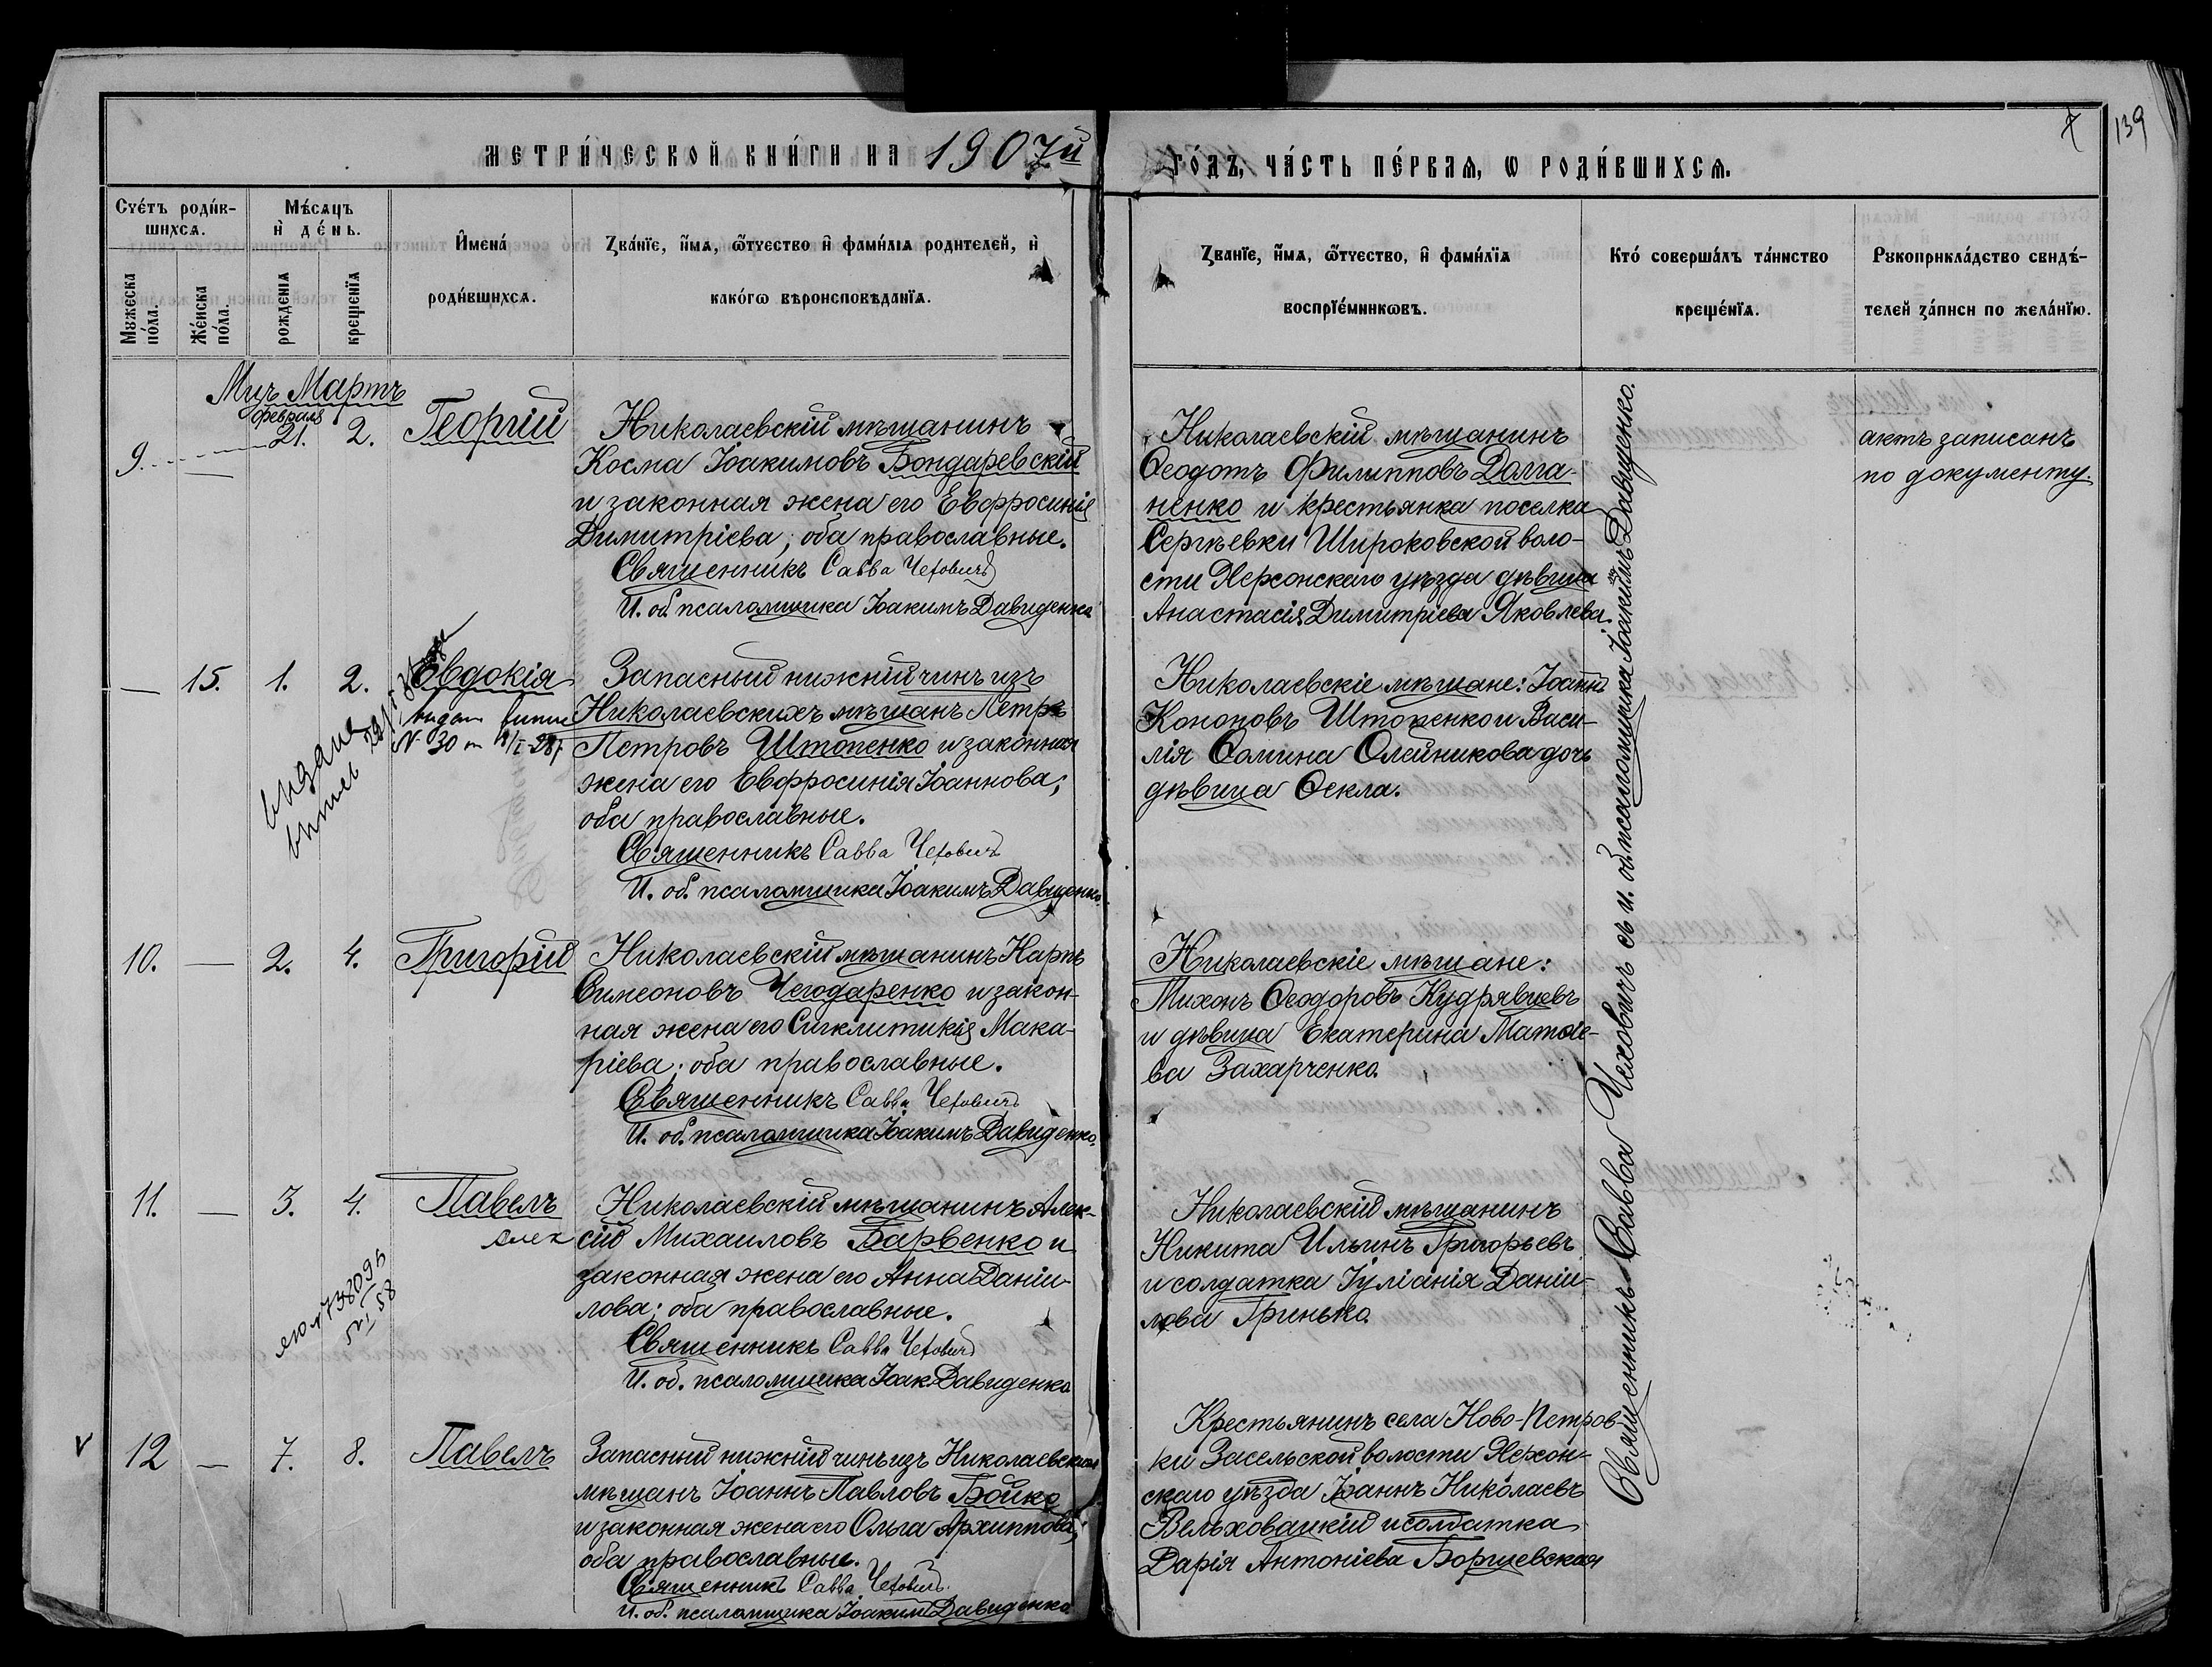 МЕТРИ́ЧЕСКОЙ КНИ́ГИ НА 1907й ГО́ДЪ, ЧА́СТЬ ПЕ́РВАЯ, Ѡ РОДИ́ВШИХСЯ.
139
Счéтъ роди́в-
шихся.
Мѣ́сяцъ
и҆ де́нь.
Мужеска по́ла.
Же́нска по́ла.
рожденія
крещенїя
И҆мена́
роди́вшихся.
Зва́нїе, и҆́мя, ѻ҆́тчество и҆ фами́лїя родителей, и҆
како́гѡ вѣроисповѣданїя.
Званїе, и҆́мя, ѻ҆́тчество, и҆ фами́лїя
воспрїе́мникѡвъ.
Кто́ соверша́лъ та́инство
креще́нїя.
Рукоприкла́дство свидѣ́-
телей за́писи по жела́нїю.
Мцъ Мартъ
февраля
9. — 21. 2. Георгій
Николаевскій мѣщанинъ
Косма Іоакимовъ Бондаревскій
и законная жена его Евфросинія
Димитріева, оба православные.
Священникъ Савва Чехович
И. об. псаломщика Іоакимъ Давиденко
Николаевскій мѣщанинъ
Ѳеодотъ Филипповъ Долга-
ненко и крестьянка поселка
Сергѣевки Широковской воло-
сти Херсонскаго уѣзда дѣвица
Анастасія Димитріева Яковлева.
актъ записанъ
по документу.
— 15. 1. 2. Евдокія
№ 30
Запасный нижній чинъ изъ
Николаевскихъ мѣщанъ Петръ
Петровъ Штопенко и законная
жена его Евфросинія Іоаннова;
оба православные.
Священникъ Савва Чехович
И. об. псаломщика Іоакимъ Давиденко.
Николаевскіе мѣщане: Іоаннъ
Кононовъ Штопенко и Васи-
лія Ѳомина Олейникова дочь
дѣвица Ѳекла.
10. — 2. 4. Григорій
Николаевскій мѣщанинъ Карпъ
Симеоновъ Чегодаренко и закон-
ная жена его Сигклитикія Мака-
ріева; оба православные.
Священникъ Савва Чехович
И. об. псаломщика Іоакимъ Давиденко.
Николаевскіе мѣщане:
Тихонъ Ѳеодоровъ Кудрявцевъ
и дѣвица Екатерина Матѳіе-
ва Захарченко.
11. — 3. 4. Павелъ
Николаевскій мѣщанинъ Алек-
сій Михаиловъ Барвенко и
законная жена его Анна Даніи-
лова; оба православные.
Священникъ Савва Чехович
И. об. псаломщика Іоак. Давиденко
Николаевскій мѣщанинъ
Никита Ильинъ Григорьевъ
и солдатка Іуліанія Даніи-
лова Гринько.
V 12 — 7. 8. Павелъ
Запасный нижній чинъ изъ Николаевскихъ
мѣщанъ Іоаннъ Павловъ Бойко
и законная жена его Ольга Архиппова,
оба православные.
Священникъ Савва Чехович
И. об. псаломщика Іоаким Давиденко
Крестьянинъ села Ново-Петров-
ки Засельской волости Херсон-
скаго уѣзда Іоаннъ Николаевъ
Вельховацкій и солдатка
Дарія Антоніева Борщевская
Священникъ Савва Чеховичъ съ и. об. псаломщика Іоакимомъ Давиденко.